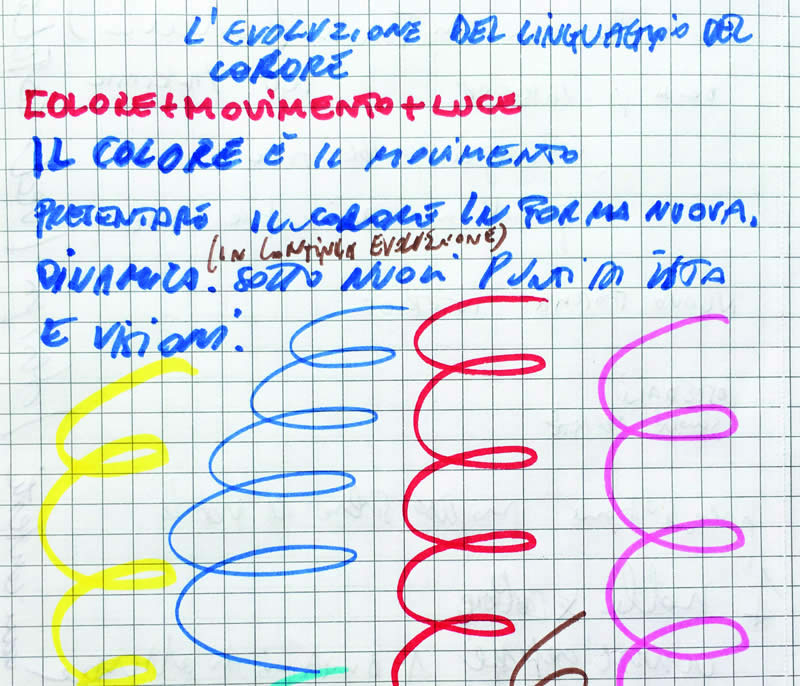 L'EVOLUZIONE DEL LINGUAGGIO DEL
COLORE
COLORE+MOVIMENTO+LUCE
IL COLORE È IL MOVIMENTO
PRESENTARE IL COLORE IN FORMA NUOVA.
(IN CONTINUA EVOLUZIONE)
DINAMICA. SOTTO NUOVI PUNTI DI VISTA
E VISIONI.